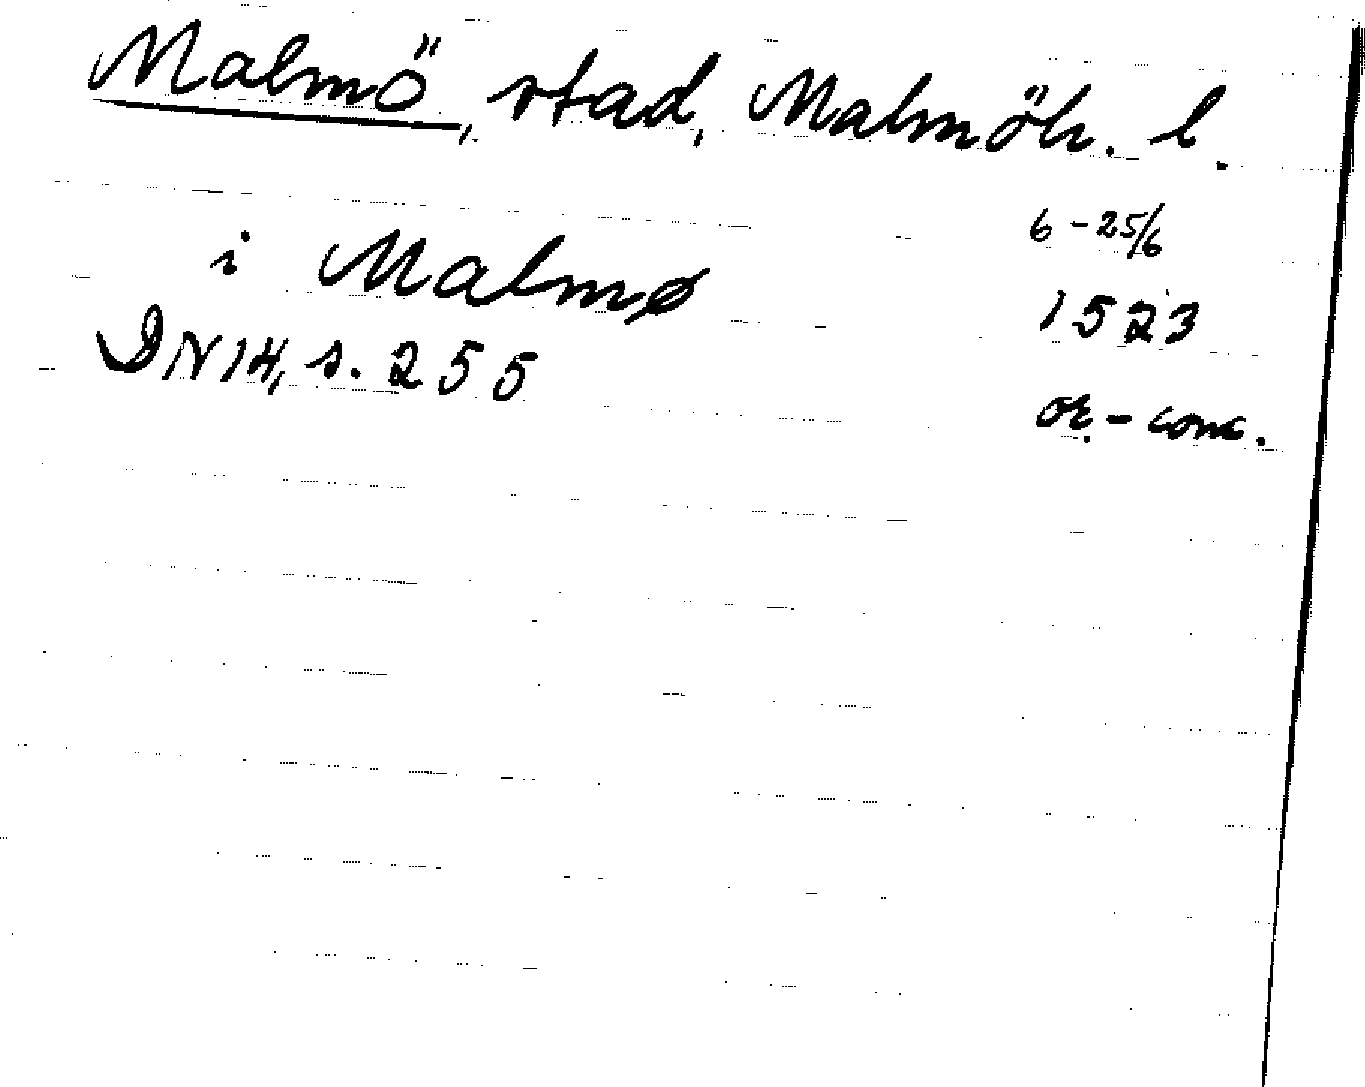 Malmö, stad, Malmöh. l.
6-25/6
i Malmø
1523
DN 14, s. 255
or.-conc.